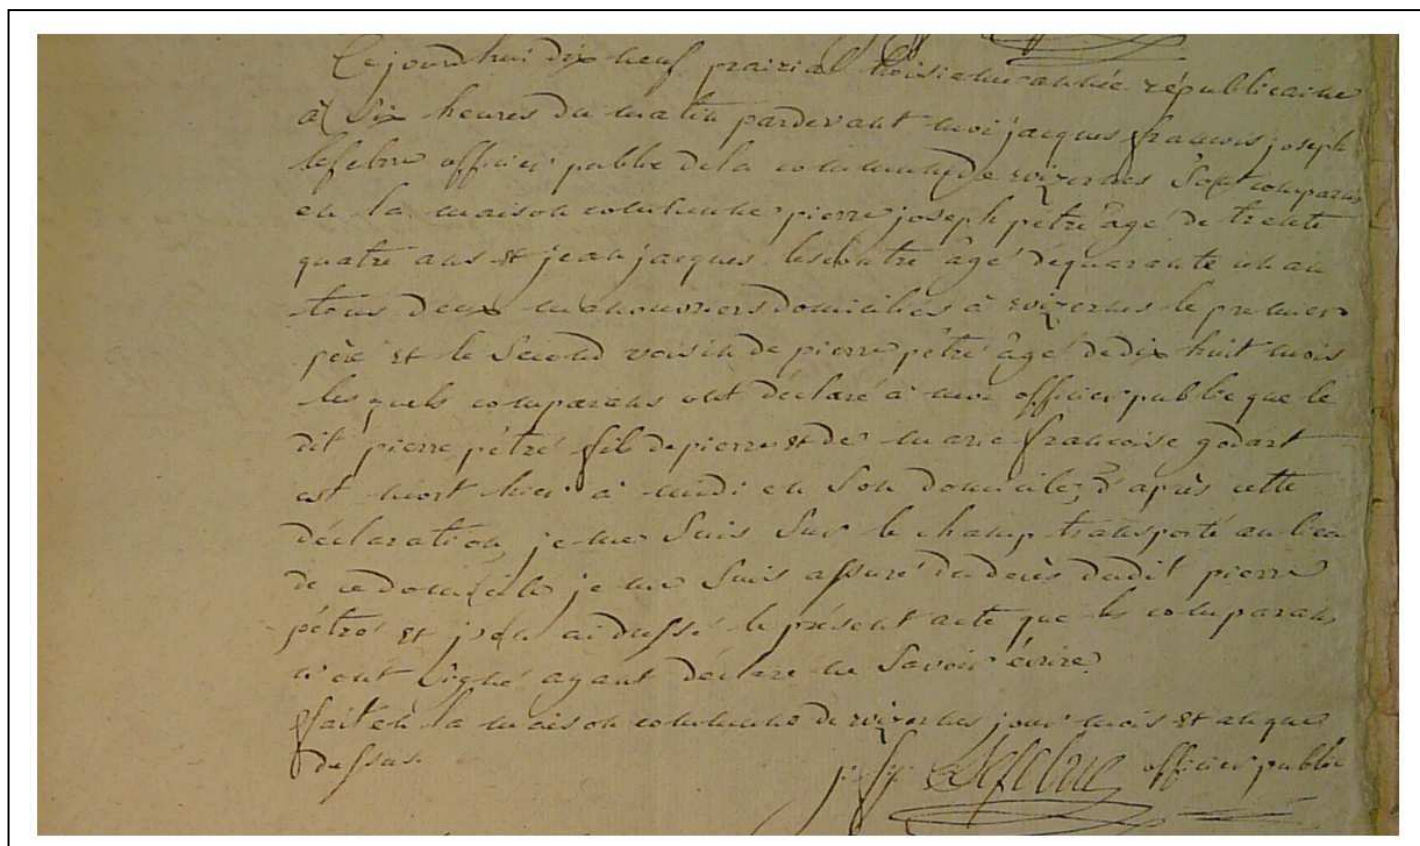 Cejourdhui dix neuf prairial troisieme année républicaine
à six heures du matin pardevant moi jacques françois joseph
lefebvre officier public dela commune de wizernes Sont comparus
en la maison commune pierre joseph pétré âgé de trente
quatre ans et jean jacques âgé dequarante un an
tous deux manouvriers domiciliés à wizernes le premier
père et le Second voisin de pierre pétré âgé dedix huit mois
lesquels comparans ont déclaré à moi officier public que le
dit pierre pétré fils depierre et de marie francoise godart
est mort hier à midi en Son domicile, d'après cette
déclaration, je me Suis Sur le champ transporté au lieu
de ce domicile je me Suis assuré du decès dudit pierre
pétré et j'en ai dressé le présent acte que les comparans
n'ont Signé ayant déclaré ne Savoir écrire
fait en la maison commune de wizernes jour mois et an que
dessus.
Lefebvre officier public